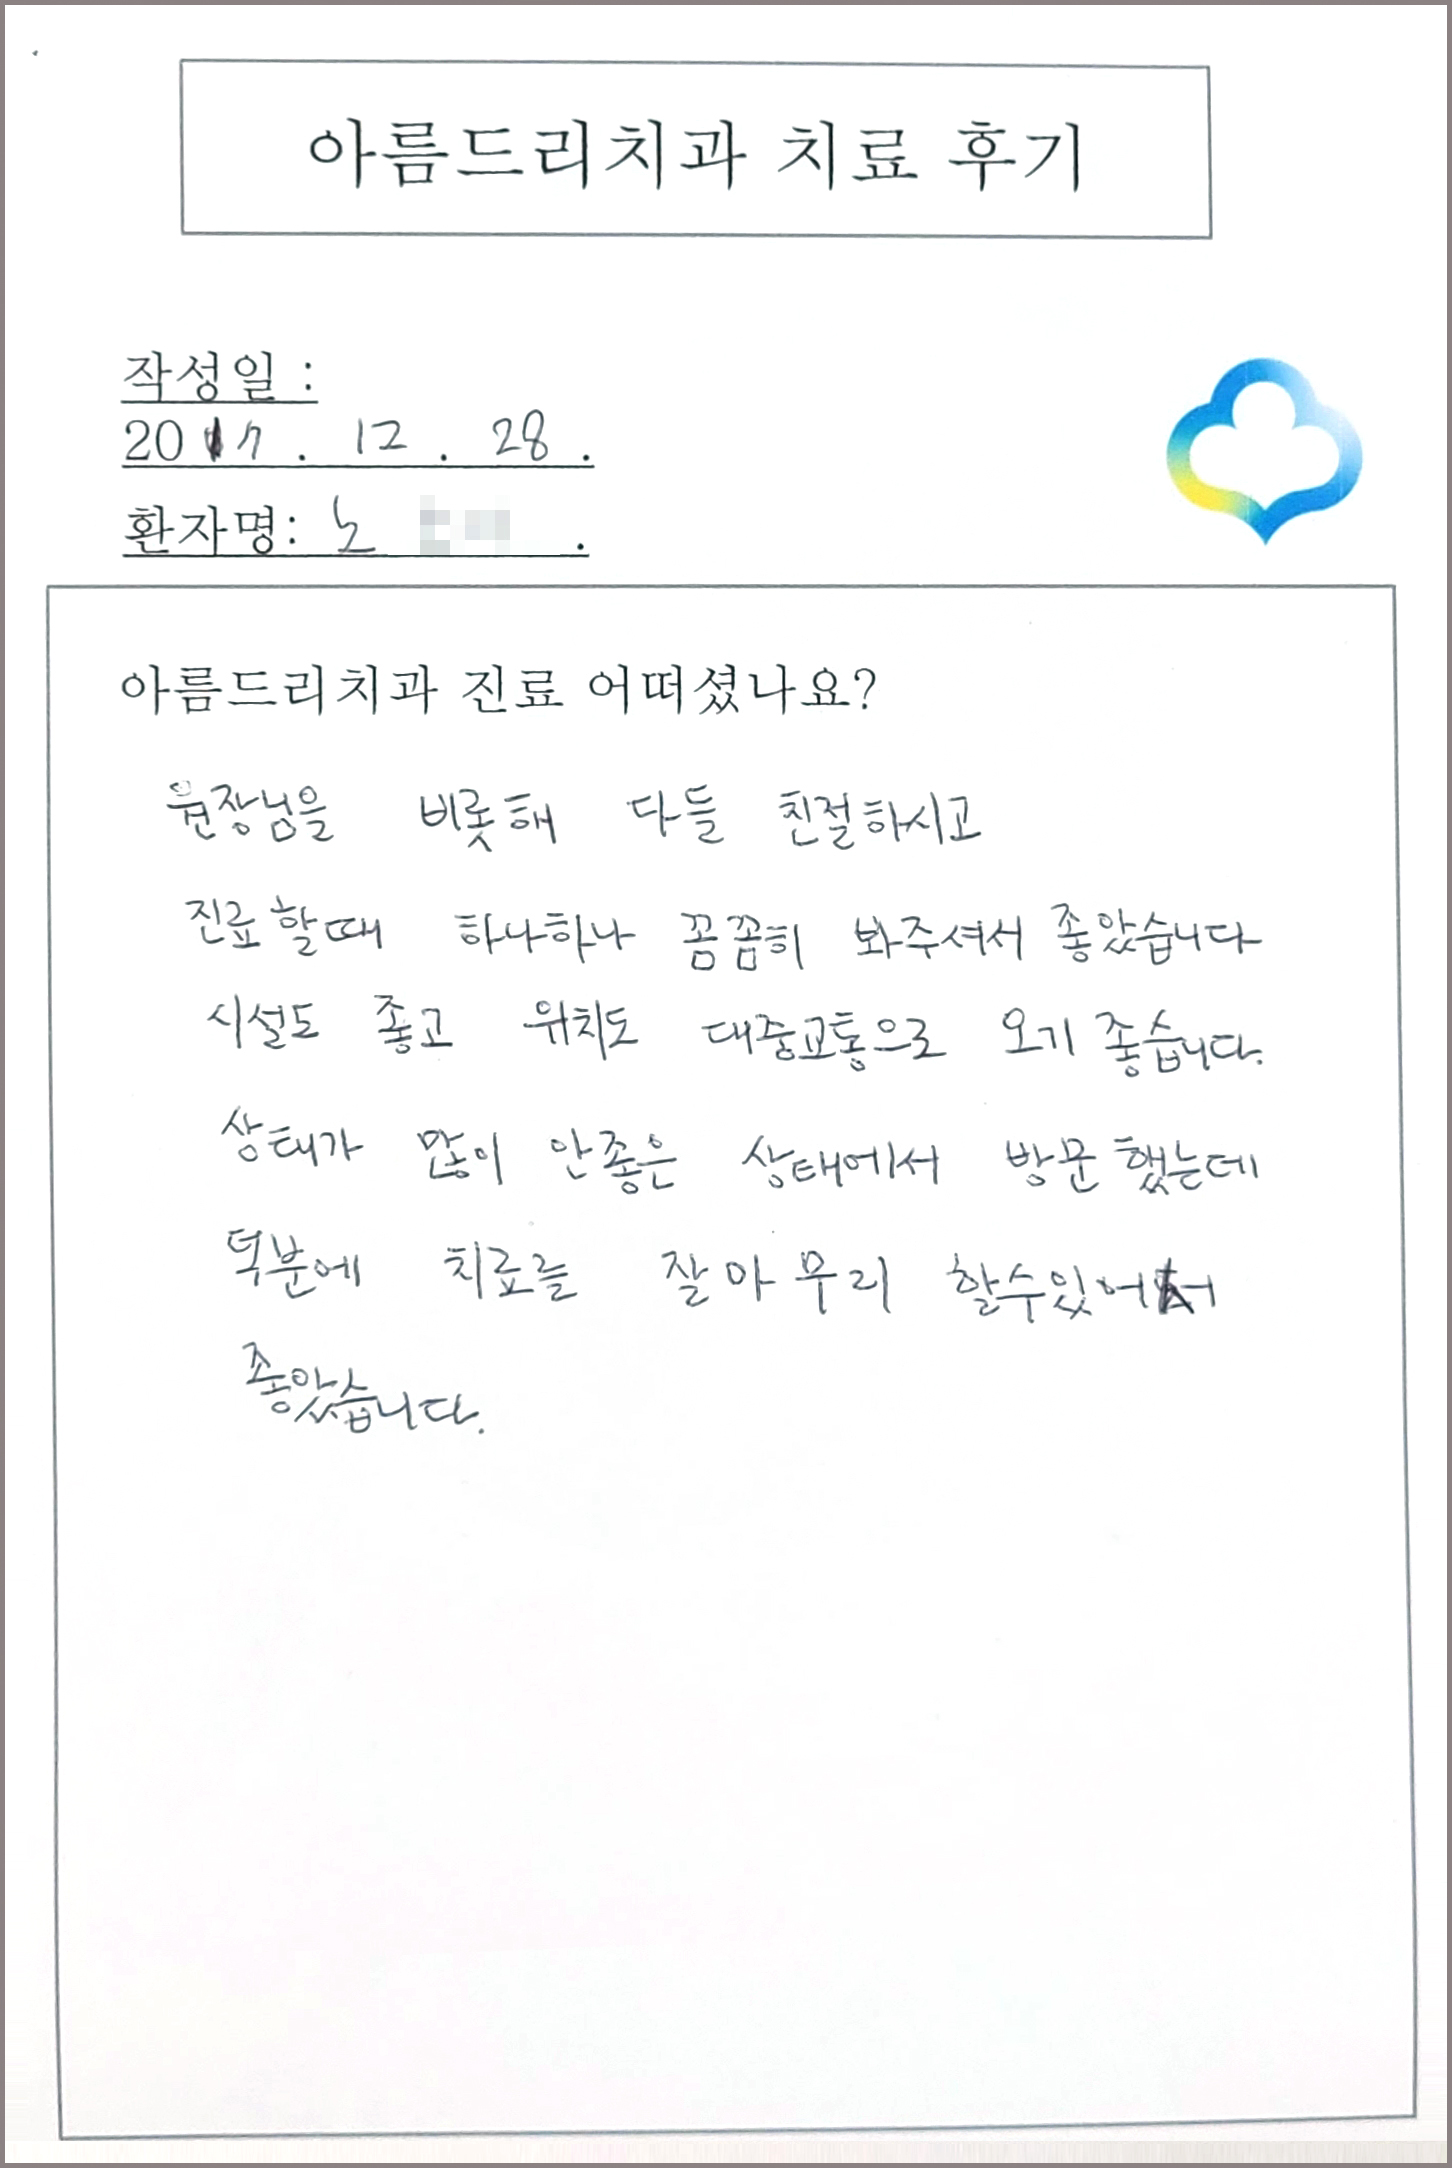 아름드리치과 치료 후기
작성일 :
2017 . 12 . 28 .
환자명: 노 .
아름드리치과 진료 어떠셨나요?
원장님을 비롯해 다들 친절하시고
진료할때 하나하나 꼼꼼히 봐주셔서 좋았습니다
시설도 좋고 위치도 대중교통으로 오기 좋습니다.
상태가 많이 안좋은 상태에서 방문했는데
덕분에 치료를 잘 마무리 할수있어서
좋았습니다.